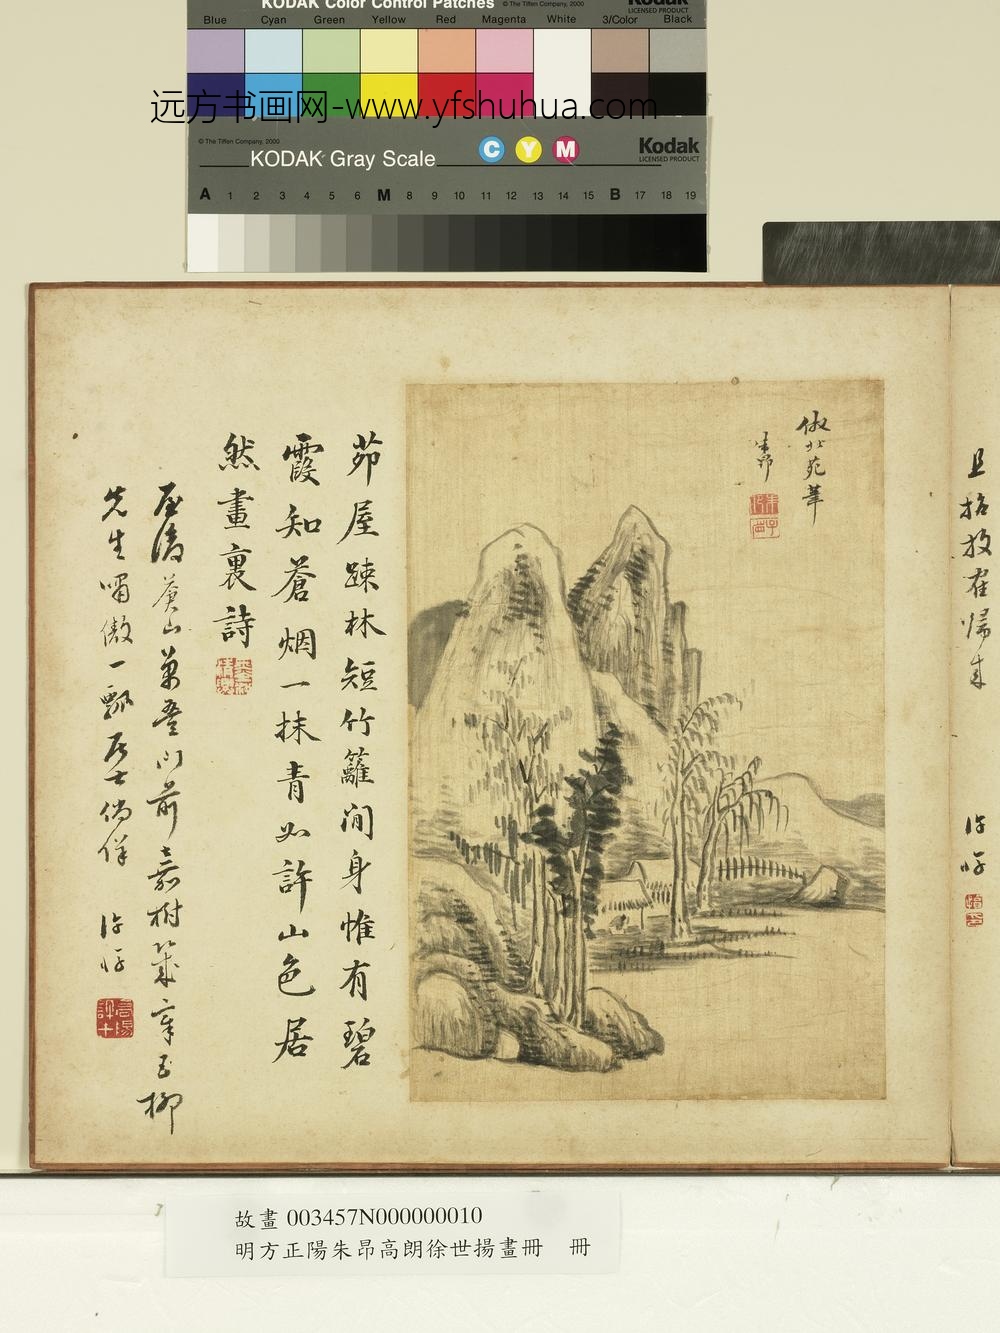 KODAK Color Control Patches
© The Tiffen Company, 2000
Kodak
LICENSED PRODUCT
Blue Cyan Green Yellow Red Magenta White 3/Color Black
远方书画网-www.yfshuhua.com
© The Tiffen Company, 2000
KODAK Gray Scale
C Y M
Kodak
LICENSED PRODUCT
A 1 2 3 4 5 6 M 8 9 10 11 12 13 14 15 B 17 18 19
倣北苑筆
朱昂
茆屋踈林短竹籬閒身惟有碧
霞知蒼烟一抹青如許山色居
然畫裏詩
屋後蒼山門前嘉樹五柳
先生嘯傲一瓢居士倘佯
許
且
放
歸來
許
故畫 003457N000000010
明方正陽朱昂高朗徐世揚畫冊 冊